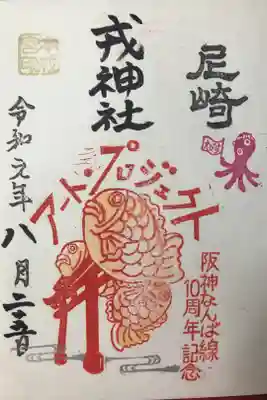 尼崎
戎神社
アート・プロジェクト
阪神なんば線
10周年記念
令和元年八月二十五日